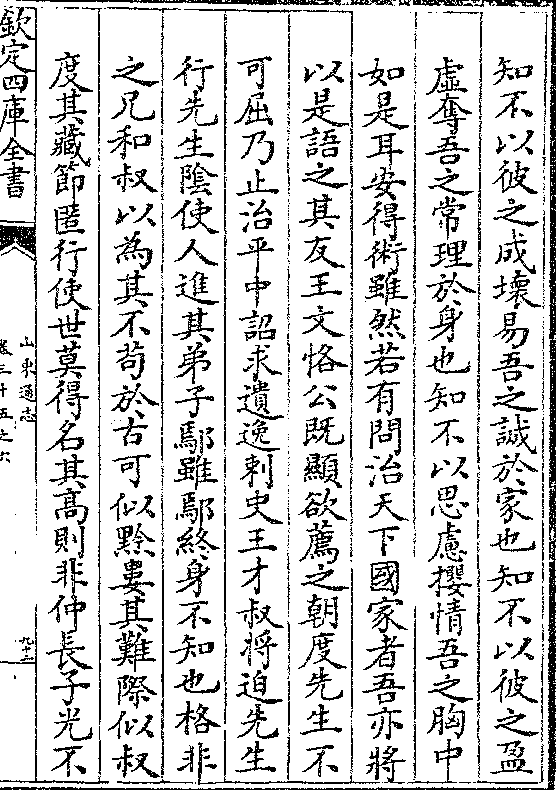 知不以彼之成壞易吾之誠於家也知不以彼之盈
虛奪吾之常理於身也知不以思慮攖情吾之胸中
如是耳安得術雖然若有問治天下國家者吾亦將
以是語之其友王文恪公既顯欲薦之朝度先生不
可屈乃止治平中詔求遺逸刺史王才叔將迫先生
行先生陰使人進其弟子鄢雖鄢終身不知也格非
之兄和叔以為其不苟於古可似黔婁其難際似叔
度其藏節匿行使世莫得名其高則非仲長子光不
欽定四庫全書
山東通志
卷三十五之六
九十二